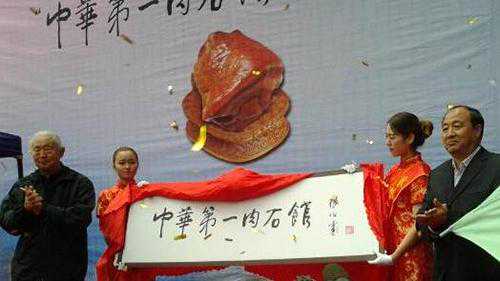 中華第一肉石館
中華第一肉石館